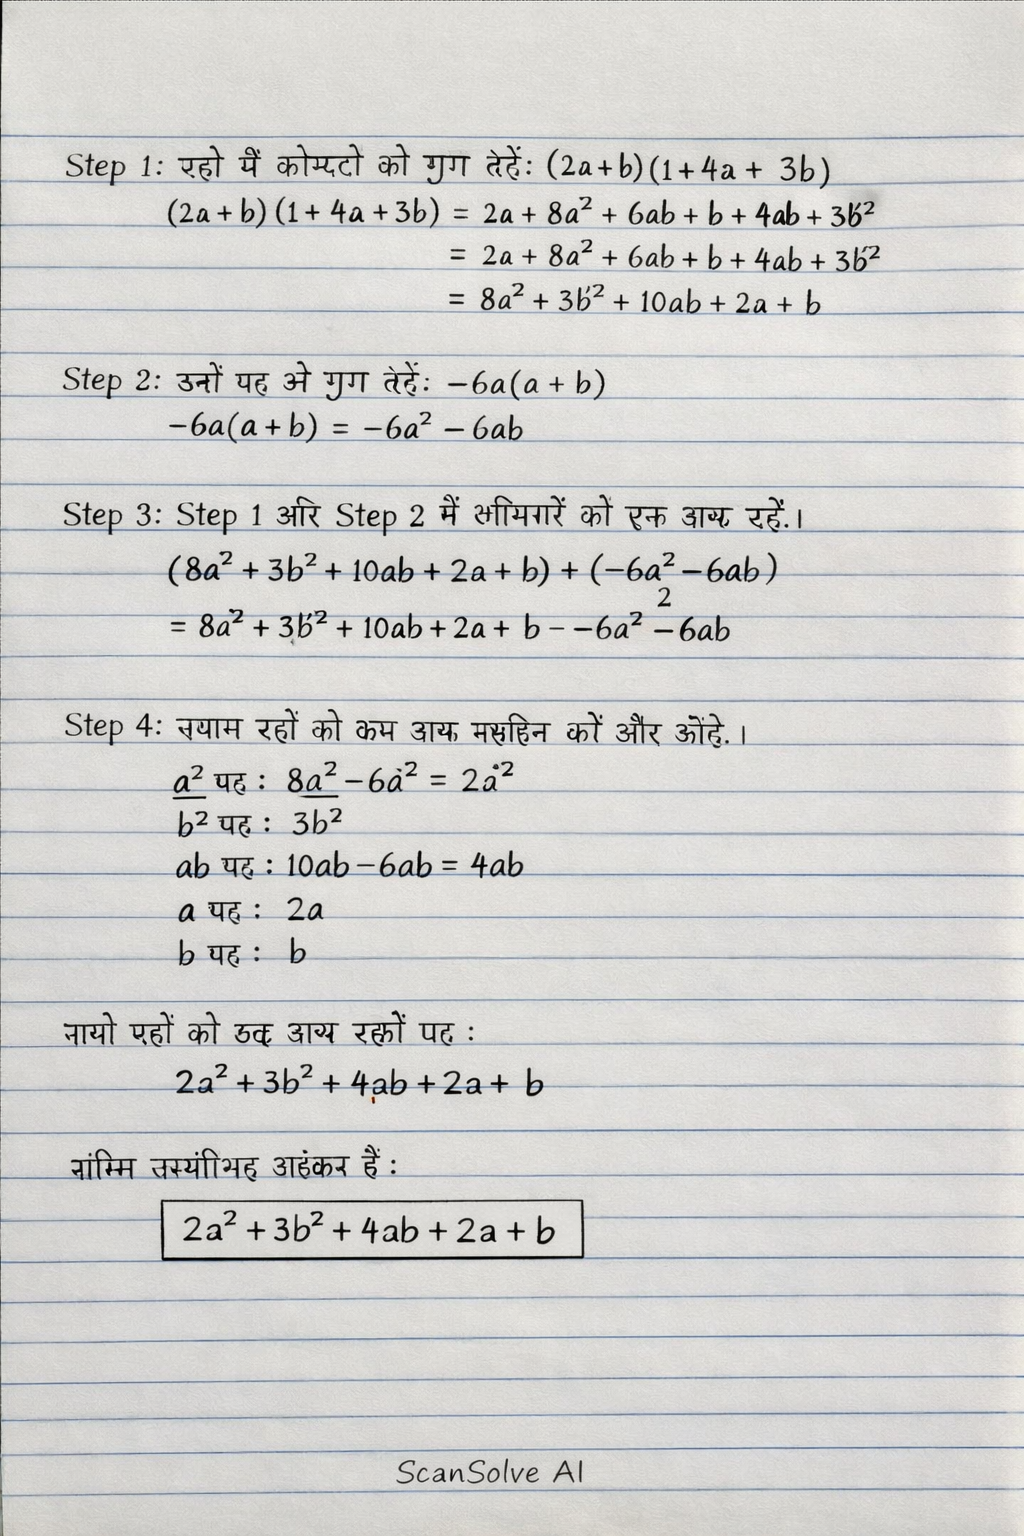 Step 1: रहो में कोम्पटो को गुग तेहें: (2a+b)(1+4a + 3b)
(2a+b)(1+4a+3b) = 2a + 8a² + 6ab + b + 4ab + 3b²
= 2a + 8a² + 6ab + b + 4ab + 3b²
= 8a² + 3b² + 10ab + 2a + b
Step 2: उनों यह अे गुग तेहें: −6a(a + b)
−6a(a+b) = −6a² − 6ab
Step 3: Step 1 अरि Step 2 में को एक आय रहें.।
(8a² + 3b² + 10ab + 2a + b) + (−6a² − 6ab)
2
= 8a² + 3b² + 10ab + 2a + b − −6a² − 6ab
Step 4: नयाम रहों को कम आय कों और ओंहे.।
a² यह : 8a² − 6a² = 2a²
b² यह : 3b²
ab यह : 10ab − 6ab = 4ab
a यह : 2a
b यह : b
नायो एहों को आय यह :
2a² + 3b² + 4ab + 2a + b
नांम्मि आहंकर हैं :
2a² + 3b² + 4ab + 2a + b
ScanSolve AI